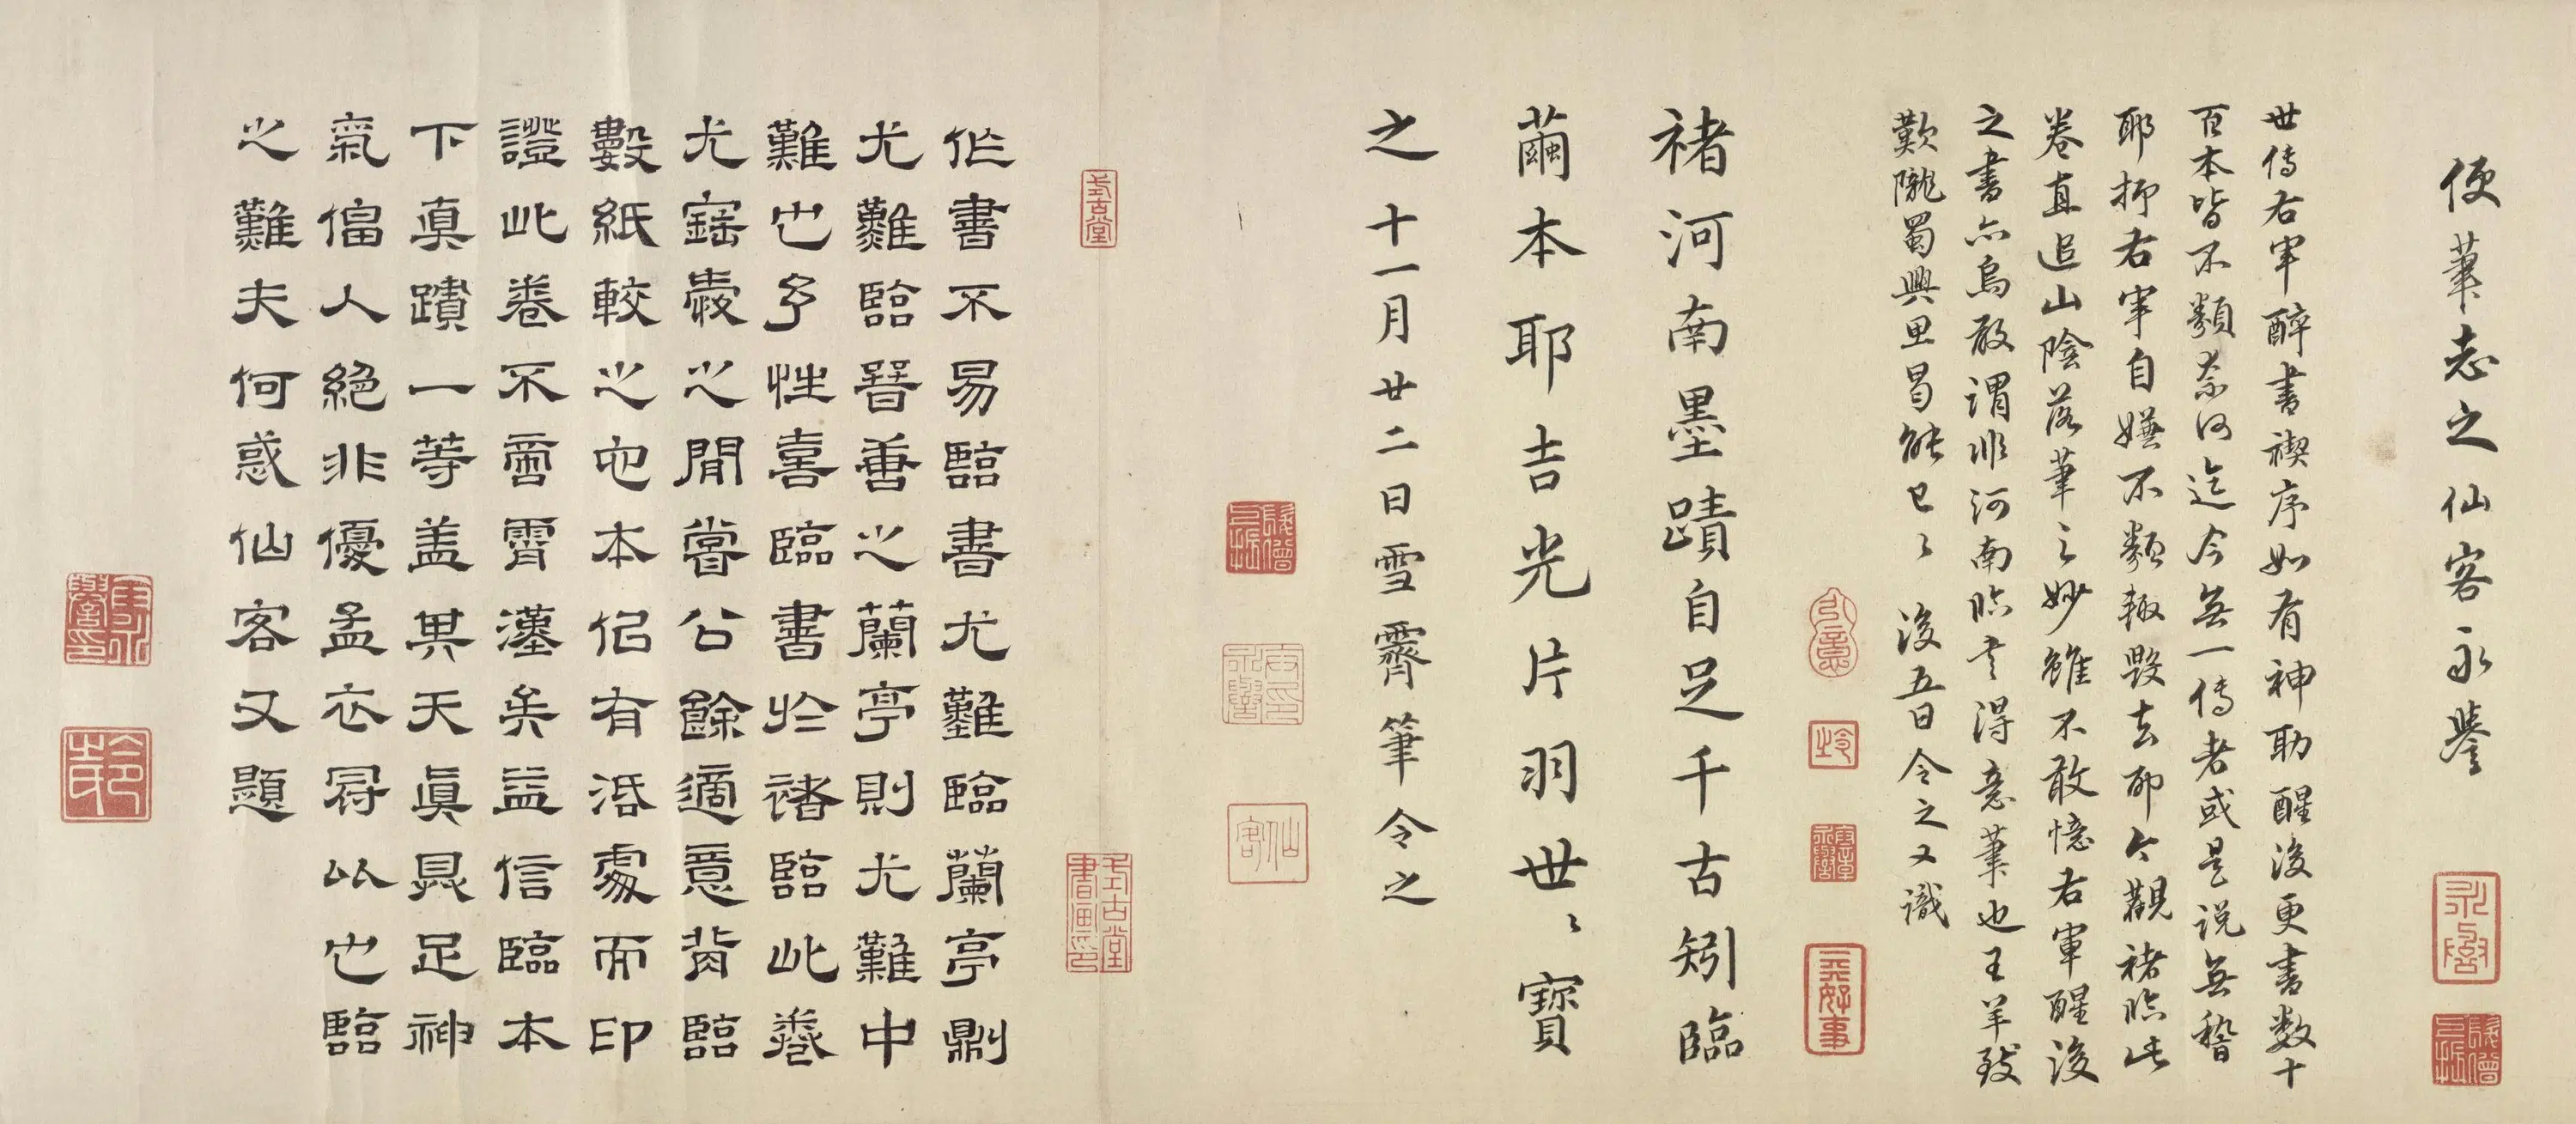 便筆志之仙客永譽
世傳右軍醉書禊序如有神助醒後更書數十
百本皆不類奈何迄今無一傳者或是說無稽
耶抑右軍自嫌不類輙毀去耶今觀褚臨此
卷直追山陰落筆之妙雖不敢憶右軍醒後
之書亦烏敢謂非河南臨書得意筆也王羊致
歎隴蜀興思曷能已〻 後五日令之又識
褚河南墨蹟自足千古矧臨
繭本耶吉光片羽世〻寶
之十一月廿二日雪霽筆令之
作書不易臨書尤難臨蘭亭則
尤難臨晉唐之蘭亭則尤難中
難也予性喜臨書於褚臨此卷
尤寤寐之閒嘗公餘適意背臨
數紙較之他本侣有浯處而印
證此卷不啻霄漢矣益信臨本
下真蹟一等盖其天真具足神
氣偪人絕非優孟衣冠以也臨
之難夫何惑仙客又題
式古堂
式古堂書画印
仙客